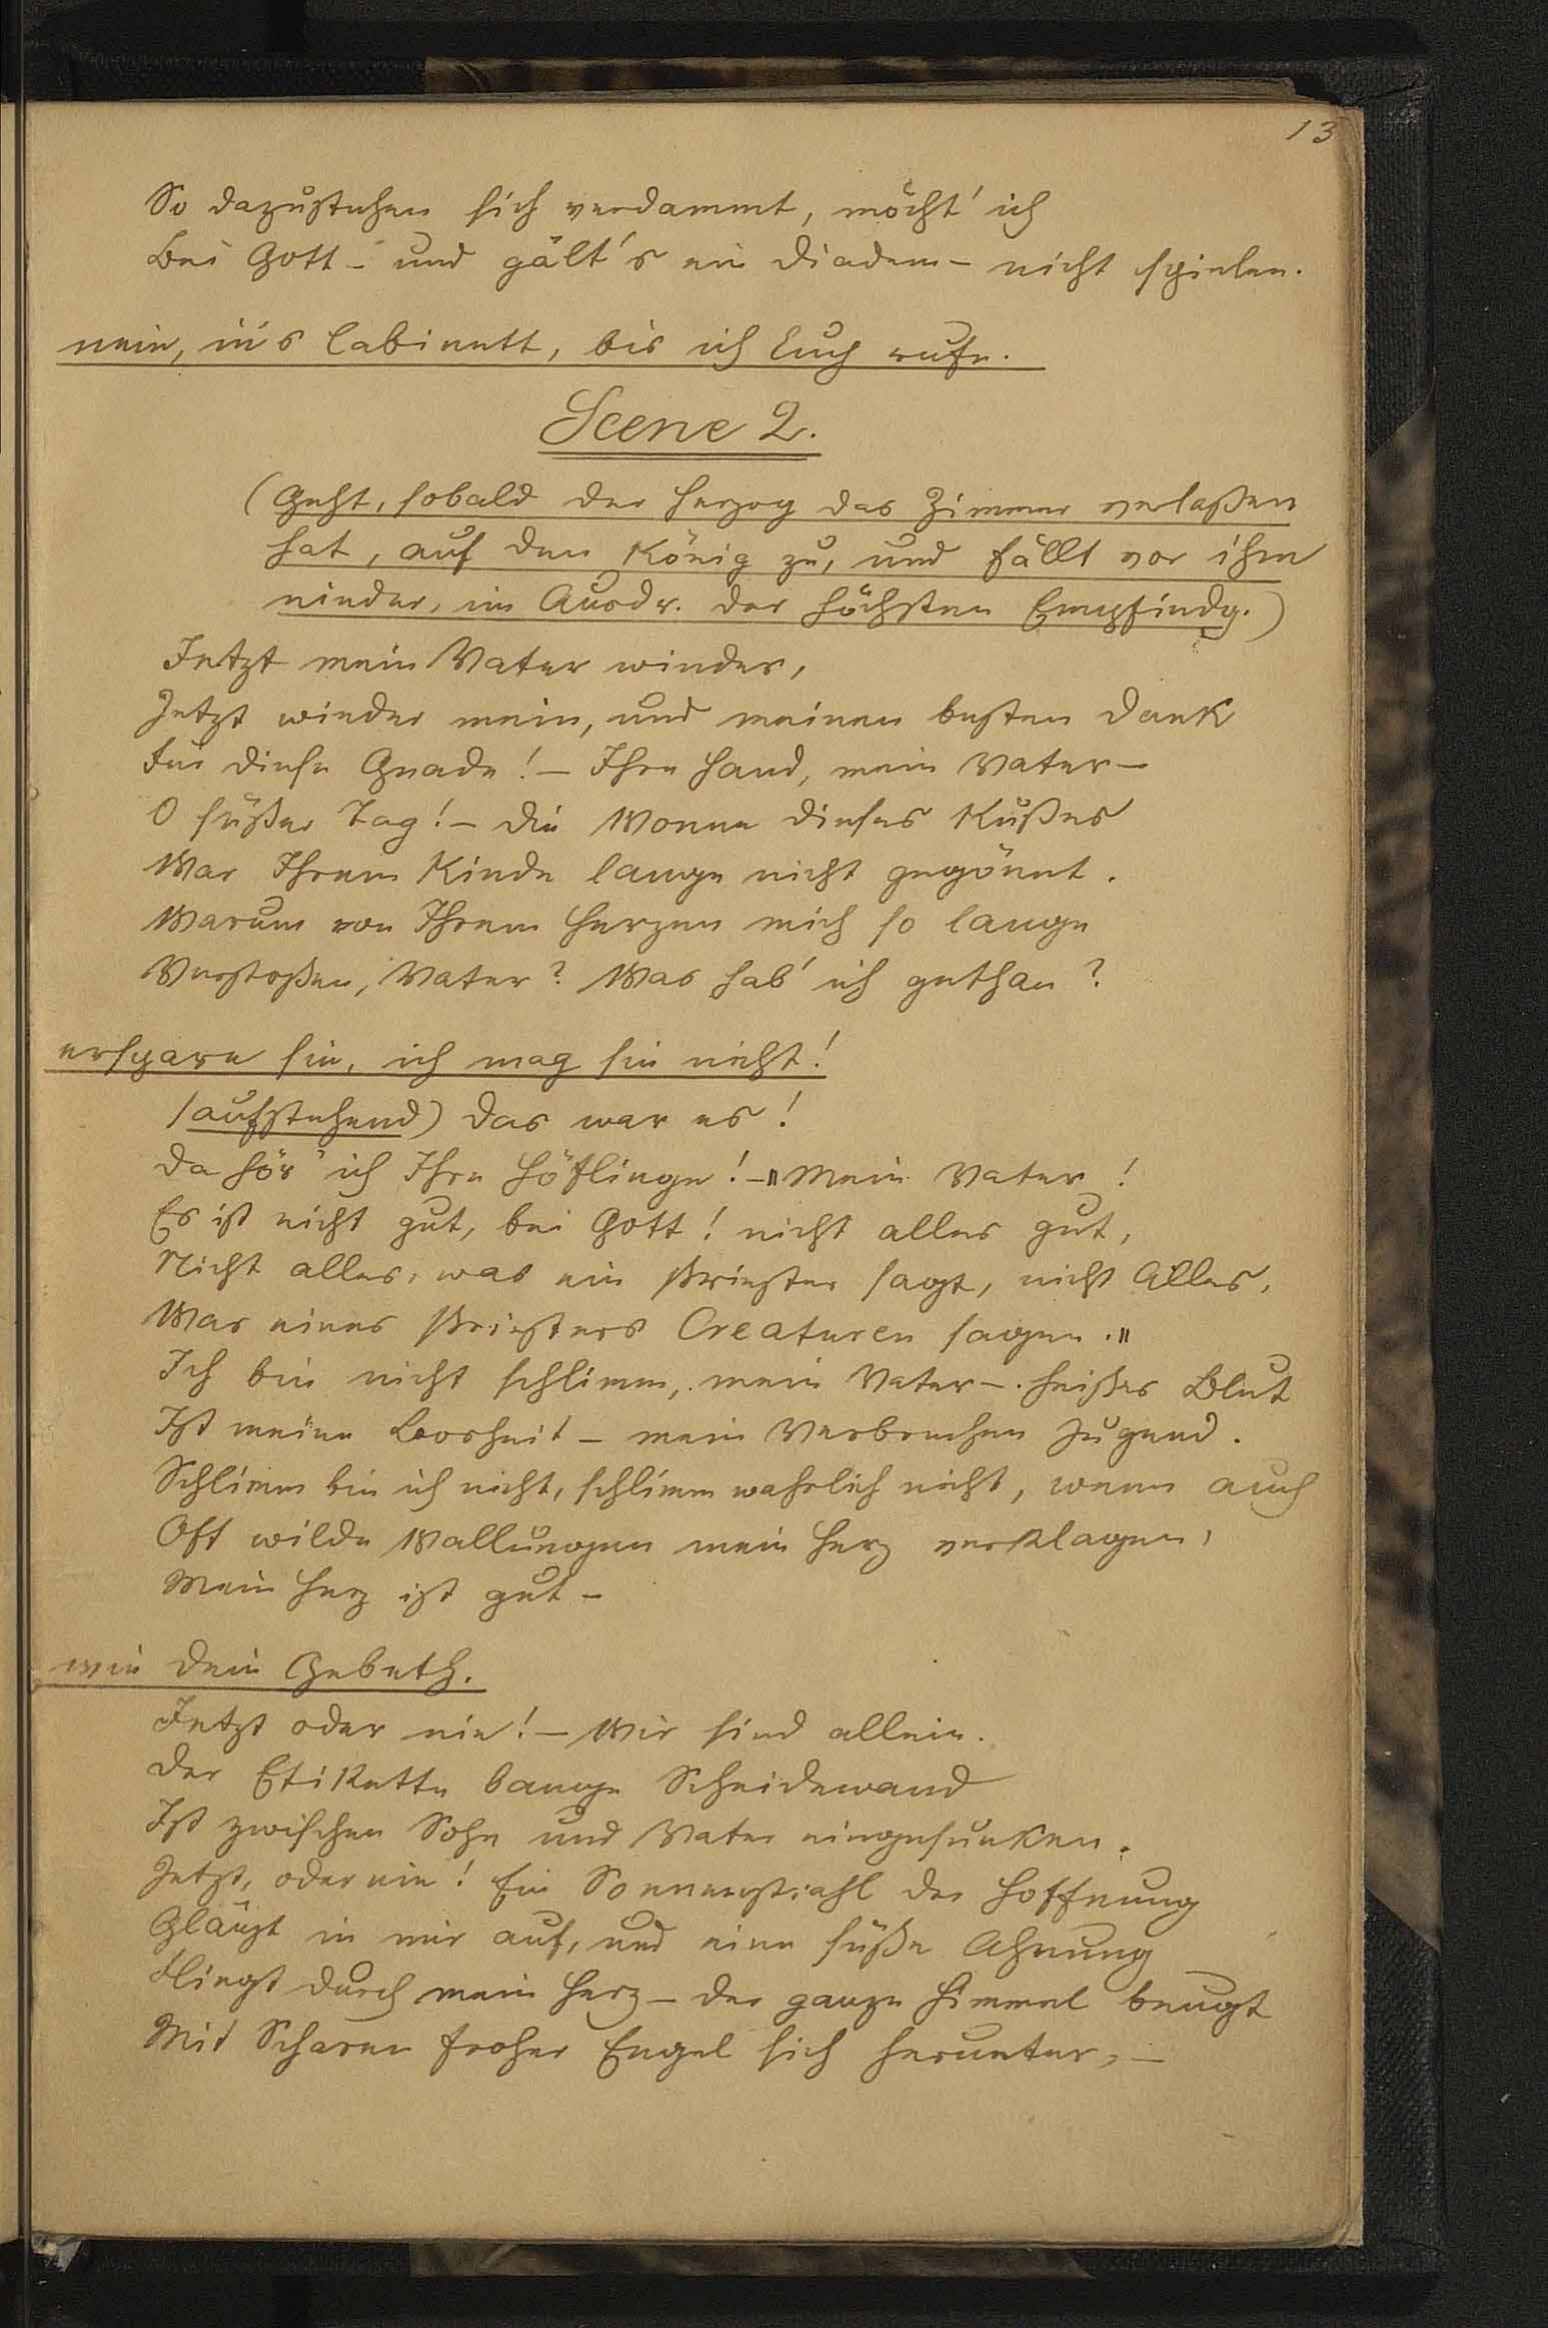 13
So dazustehen sich verdammt, möcht' ich
Bei Gott – und gält's ein Diadem – nicht spielen.
nein, in's Cabinett, bis ich Euch rufe.
Scene 2.
(Geht, sobald der Herzog das Zimmer verlaßen
hat, auf den König zu, und fällt vor ihm
nieder, im Ausdr. der höchsten Empfindg.)
Jetzt mein Vater wieder,
Jetzt wieder mein, und meinen besten Dank
Für diese Gnade! – Ihre Hand, mein Vater –
O süßer Tag! – Die Wonne dieses Kußes
War Ihrem Kinde lange nicht gegönnt.
Warum von Ihrem Herzen mich so lange
Verstoßen, Vater? Was hab' ich gethan?
erspare sie, ich mag sie nicht!
(aufstehend) Das war es!
Da hör' ich Ihre Höflinge! – "Mein Vater!
Es ist nicht gut, bei Gott! nicht alles gut,
Nicht alles, was ein Priester sagt, nicht Alles,
Was eines Priesters Creaturen sagen."
Ich bin nicht schlimm, mein Vater –. heißes Blut
Ist meine Bosheit – mein Verbrechen Jugend.
Schlimm bin ich nicht, schlimm wahrlich nicht, wenn auch
Oft wilde Wallungen mein Herz verklagen,
Mein Herz ist gut –
wie dein Gebeth.
Jetzt oder nie! – Wir sind allein.
Der Etikette bange Scheidewand
Ist zwischen Sohn und Vater eingesunken.
Jetzt, oder nie! Ein Sonnenstrahl der Hoffnung
Glänzt in mir auf, und eine süße Ahnung
Fliegt durch mein Herz – der ganze Himmel beugt
Mit Scharen froher Engel sich herunter, –